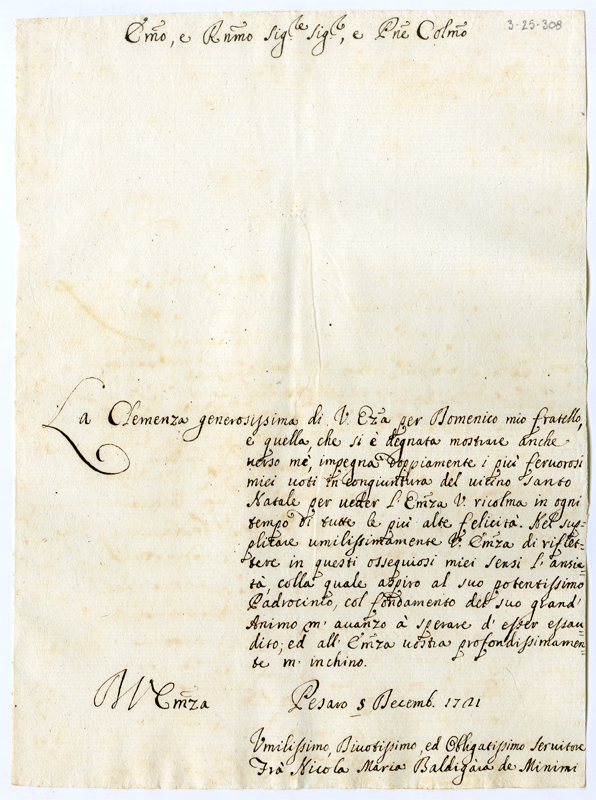 Em̃o, e Rñmo Sig.re Sig.re, e Pñe Colm̃o
3-25-308
La Clemenza generosissima di V. Em̃za per Domenico mio fratello,
e quella, che si è degnata mostrare anche
verso me, impegna doppiamente i più fervorosi
miei voti in congiuntura del vicino Santo
Natale per veder l'Em̃za V. ricolma in ogni
tempo di tutte le più alte felicità. Nel sup-
plicare umilissimamente V. Em̃za di riflet-
tere in questi ossequiosi miei sensi l'ansie-
tà, colla quale aspiro al suo potentissimo
Padrocinio, col fondamento del suo grand'
Animo m'avanzo à sperare d'esser esau-
dito; ed all'Em̃za vostra profondissimamen-
te m'inchino.
Pesaro 5 Decemb. 1721
Em̃za
Umilissimo, Divotissimo, ed Obligatissimo Servitore
Frà Nicola Maria Baldigara de Minimi